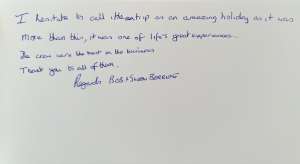 I hesitate to call the trip as an amazing holiday as it was
more than this, it was one of life's great experiences.
The crew were the best in the business
Thank you to all of them.
Regards Bob &